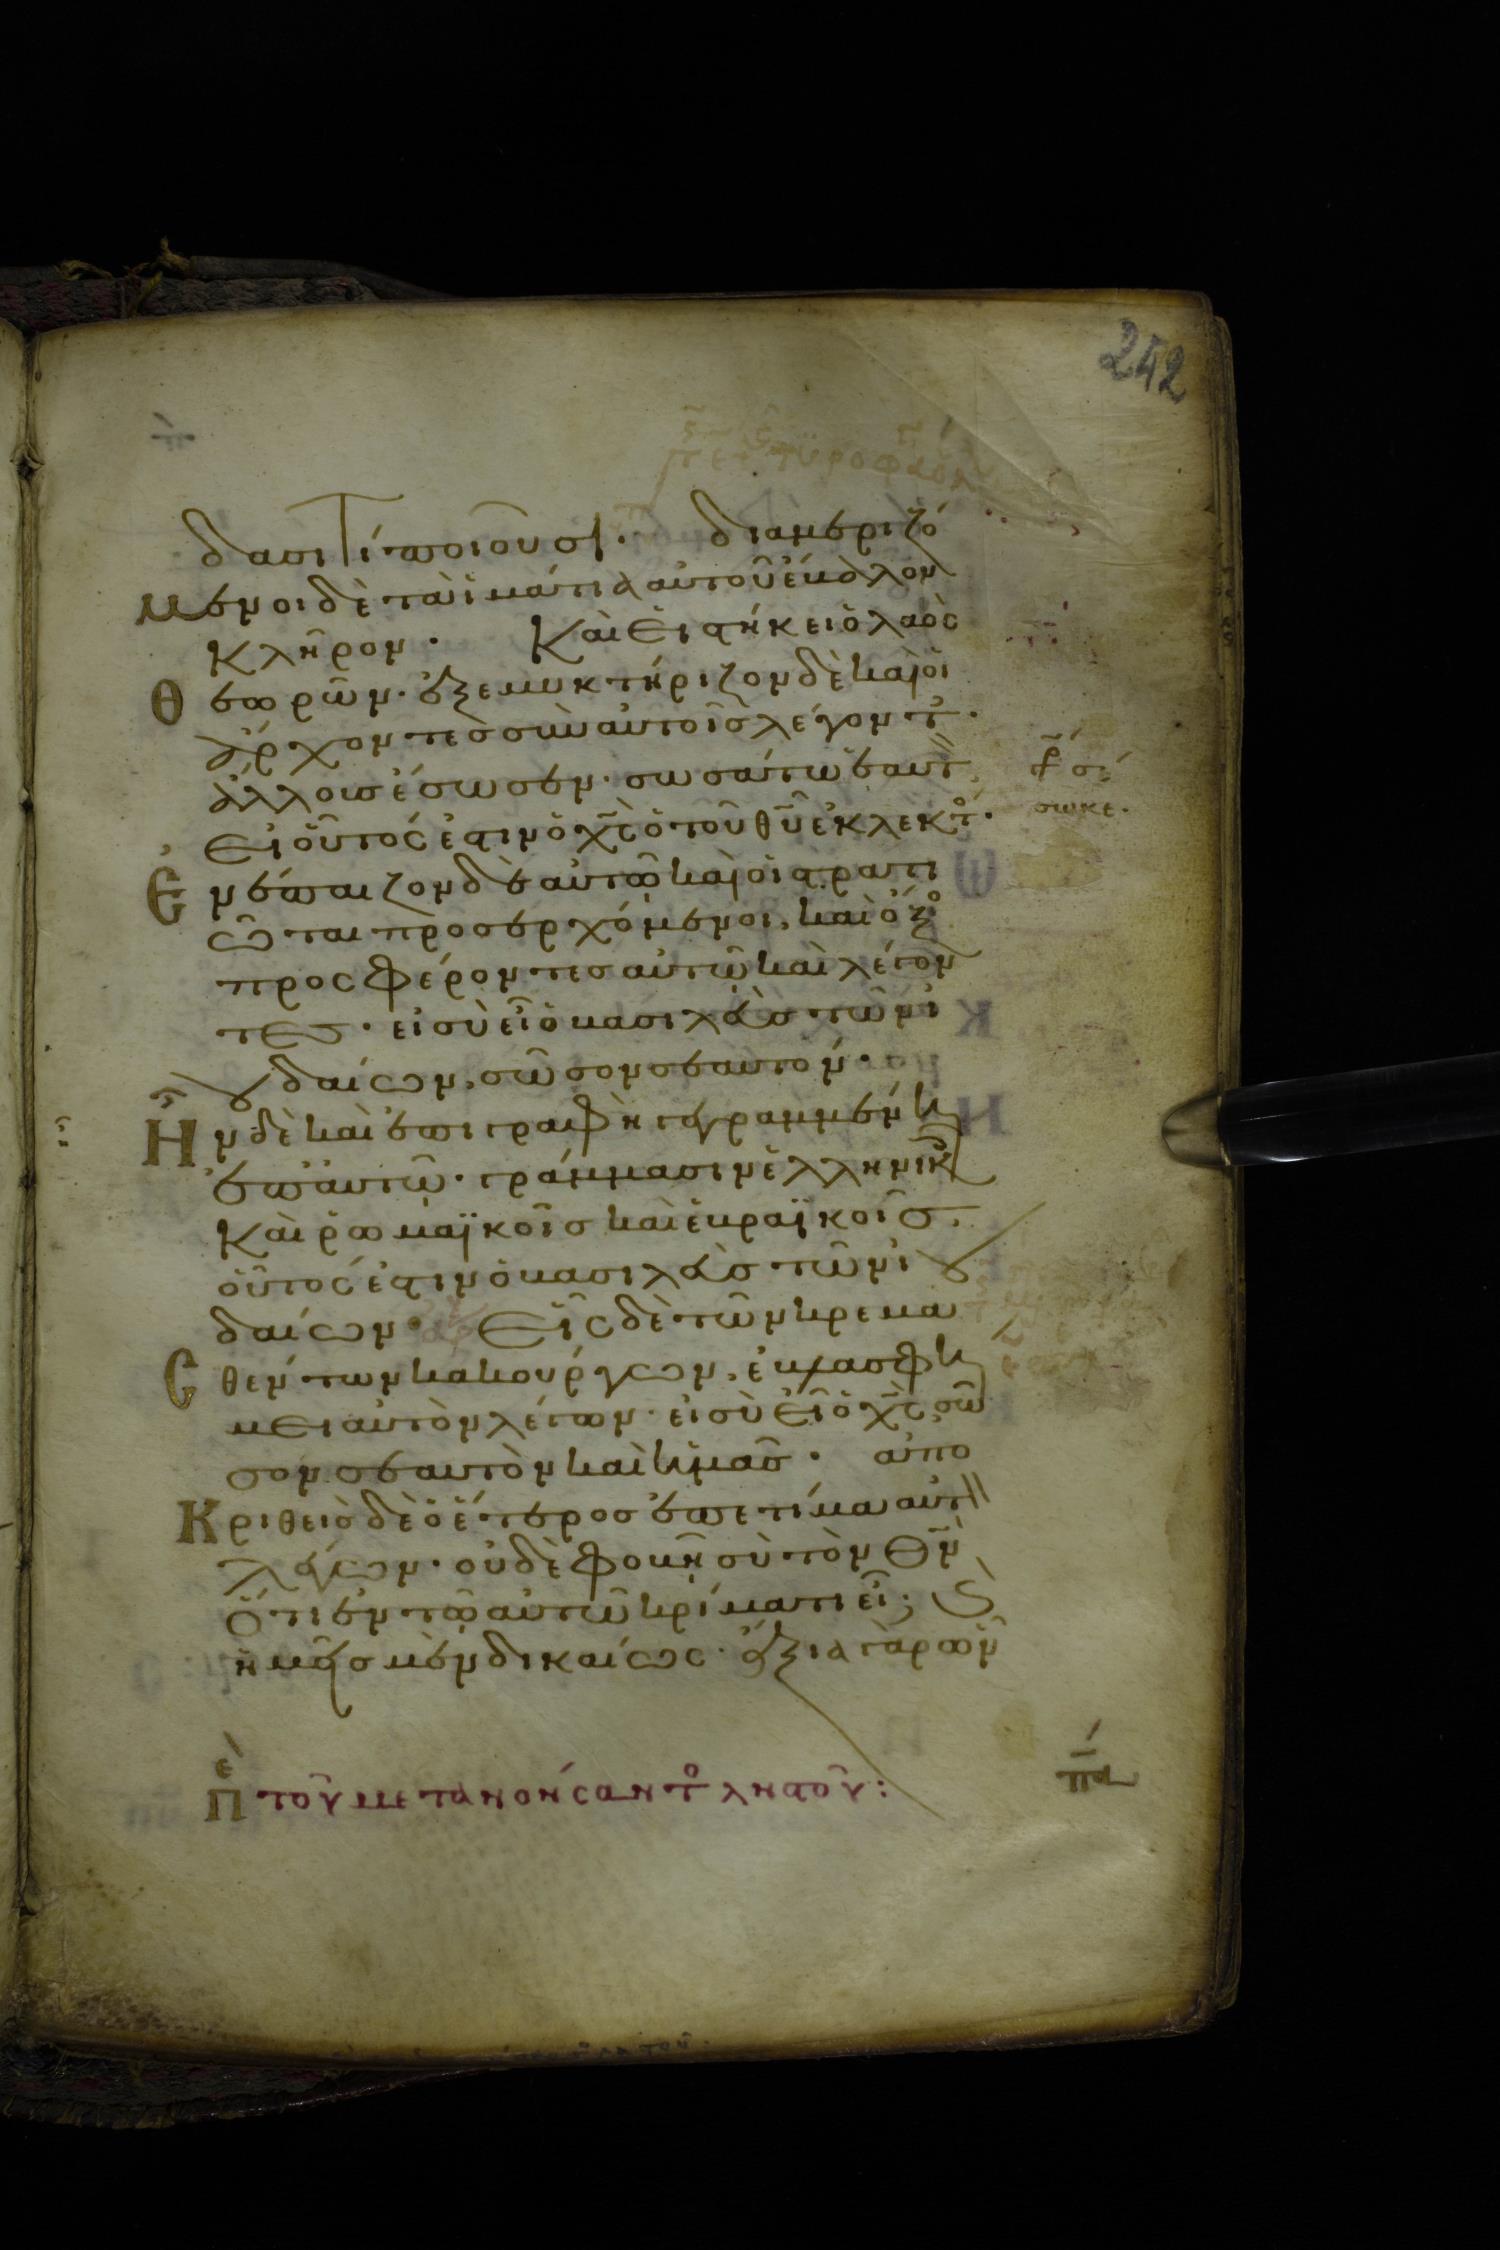 252
δασι τί ποιοῦσι. διαμεριζό
μενοι δὲ τὰ ἱμάτια αὐτοῦ ἔβαλον
κλῆρον. Καὶ εἱστήκει ὁ λαὸς
θεωρῶν. ἐξεμυκτήριζον δὲ καὶ οἱ
ἄρχοντες σὺν αὐτοῖς λέγοντ.
ἄλλους ἔσωσεν. σωσάτω ἑαυτ
εἰ οὗτός ἐστιν ὁ χς ὁ τοῦ θυ ἐκλεκτο.
Ἐνέπαιζον δὲ αὐτῶ καὶ οἱ στρατι
ῶται προσερχόμενοι, καὶ ὄξο
προσφέροντες αὐτῶ καὶ λέγον
τες. εἰ σὺ εἶ ὁ βασιλεὺς τῶν ἰ
ουδαίων, σῶσον σεαυτόν.
Ἦν δὲ καὶ ἐπιγραφὴ γεγραμμένη
ἐπ' αὐτῶ. γράμμασιν ἑλληνικ
καὶ ῥωμαϊκοῖς καὶ ἑβραϊκοῖς.
οὗτός ἐστιν ὁ βασιλεὺς τῶν ἰου
δαίων. Εἷς δὲ τῶν κρεμα
σθέντων κακούργων, ἐβλασφή
μει αὐτὸν λέγων. εἰ σὺ εἶ ὁ χς, σῶ
σον σεαυτὸν καὶ ἡμᾶς. ἀπο
Κριθεὶς δὲ ὁ ἕτερος ἐπετίμα αὐτ
λέγων. οὐδὲ φοβῆ σὺ τὸν θν
ὅτι ἐν τῶ αὐτῶ κρίματι εἶ; καὶ
ἡμεῖς μὲν δικαίως. ἄξια γὰρ ὧν
πε τοῦ μετανοήσαντο ληστοῦ:
πα